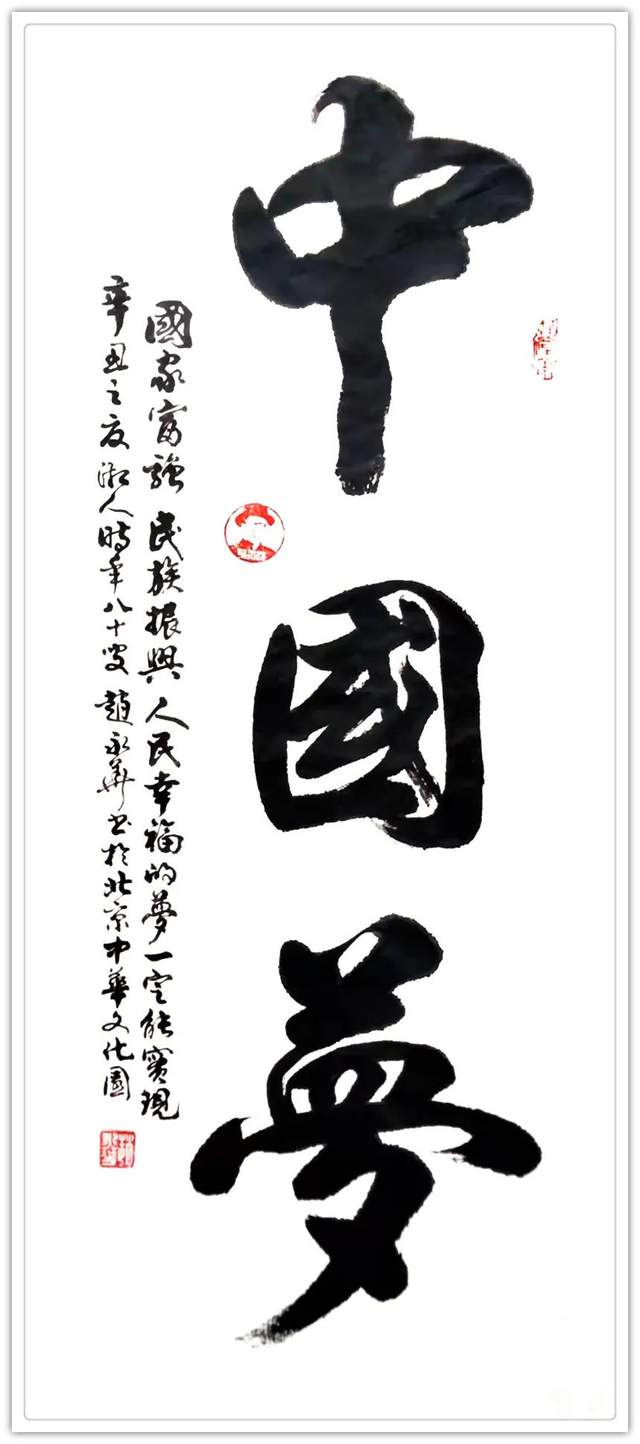 中國夢
國家富強 民族振興 人民幸福的夢一定能實現
辛丑之夏 湘人時年八十叟 趙永華書於北京中華文化園